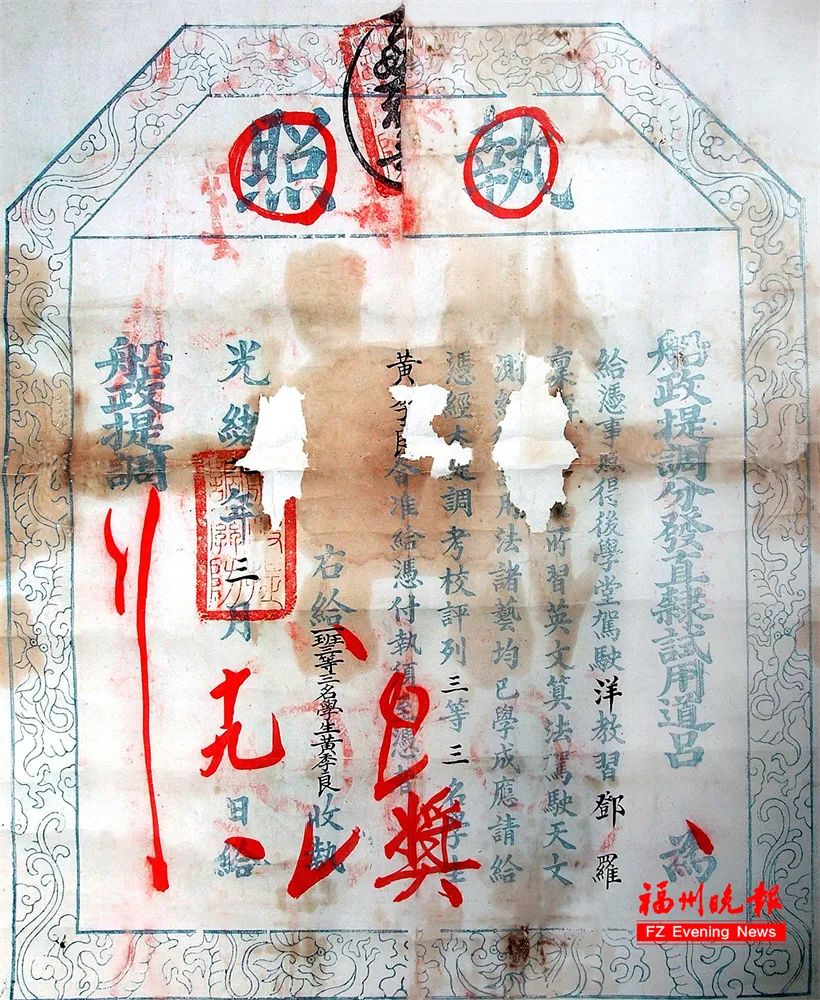 執照
船政提調分發直隸試用道呂 為
給憑事照得後學堂駕駛洋教習鄧羅
稟 所習英文算法駕駛天文
測 用法諸藝均已學成應請給
憑經本提調考校評列三等三名學生
黃季良合准給憑付執須至憑者
右給 班三等 名學生黃季良 收執
光緒 年三月十九日給
船政提調
福州晚報
FZ Evening News